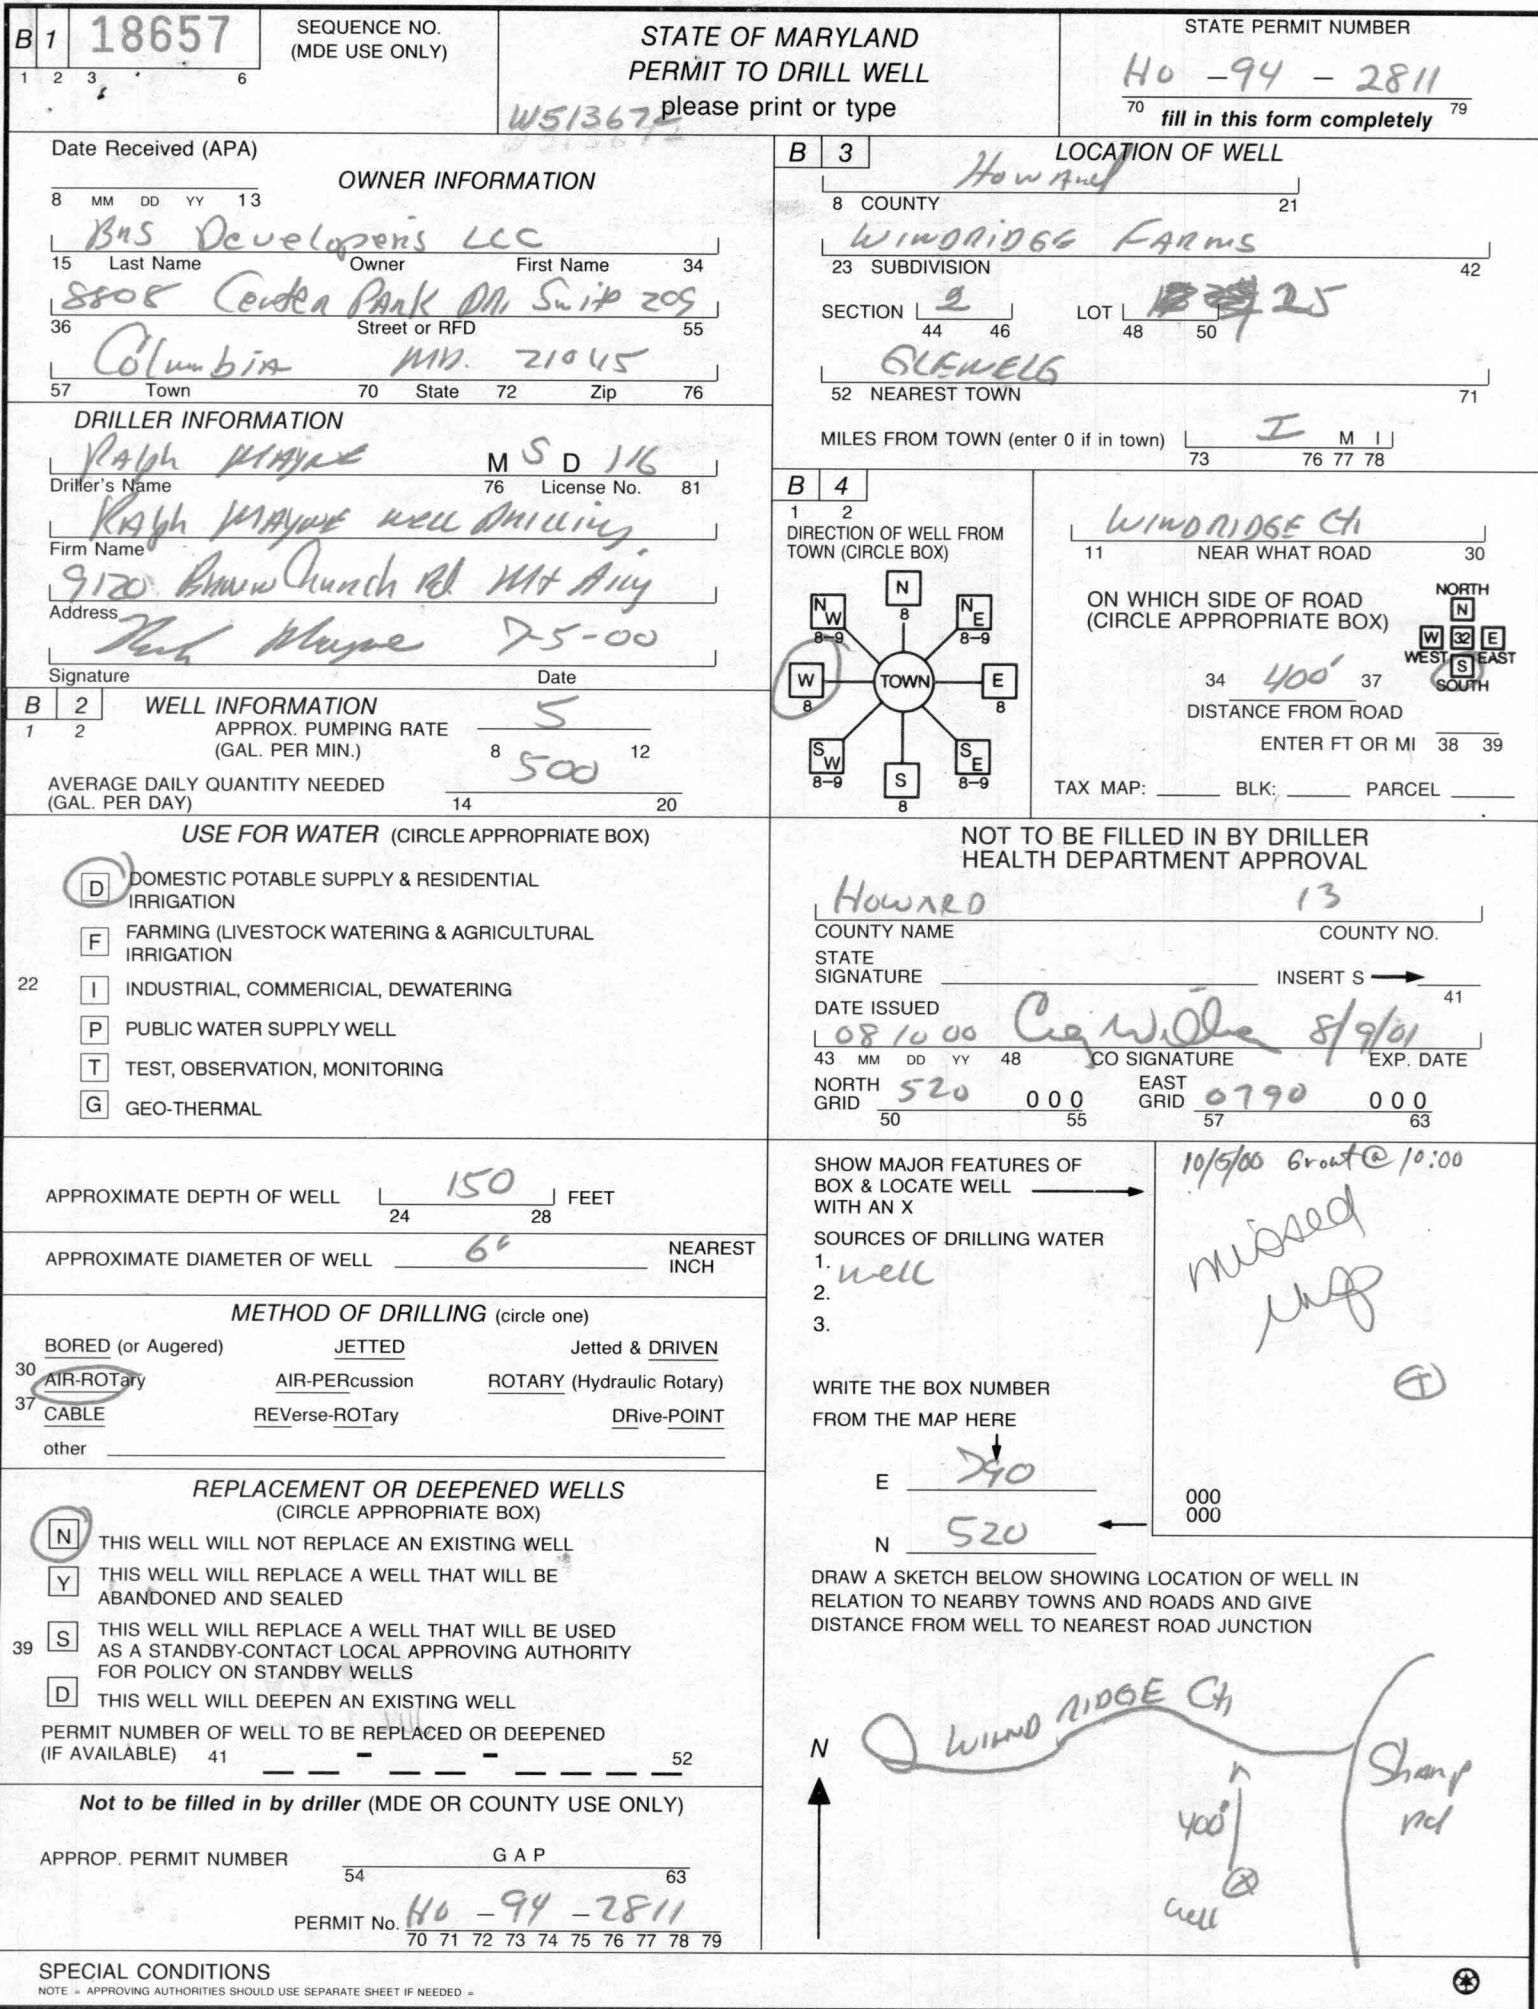 B 1 18657
1 2 3 6
SEQUENCE NO.
(MDE USE ONLY)
STATE OF MARYLAND
PERMIT TO DRILL WELL
please print or type
STATE PERMIT NUMBER
Ho - 94 - 2811
70 79
fill in this form completely
Date Received (APA)
8 MM DD YY 13
OWNER INFORMATION
BnS Developers LLC
15 Last Name Owner First Name 34
8808 Center PARK DR. Suit 209
36 Street or RFD 55
Columbia MD. 21045
57 Town 70 State 72 Zip 76
DRILLER INFORMATION
RAlph MAYNE M S D 116
Driller's Name 76 License No. 81
RAlph MAYNE well Drilling
Firm Name
9120 Brown Church Rd Mt Airy
Address
Ralph Mayne 7-5-00
Signature Date
B 2 WELL INFORMATION
1 2
APPROX. PUMPING RATE
(GAL. PER MIN.) 5
8 12
AVERAGE DAILY QUANTITY NEEDED
(GAL. PER DAY) 500
14 20
USE FOR WATER (CIRCLE APPROPRIATE BOX)
D DOMESTIC POTABLE SUPPLY & RESIDENTIAL
IRRIGATION
F FARMING (LIVESTOCK WATERING & AGRICULTURAL
IRRIGATION
22
I INDUSTRIAL, COMMERICIAL, DEWATERING
P PUBLIC WATER SUPPLY WELL
T TEST, OBSERVATION, MONITORING
G GEO-THERMAL
APPROXIMATE DEPTH OF WELL 150 FEET
24 28
APPROXIMATE DIAMETER OF WELL 6" NEAREST
INCH
METHOD OF DRILLING (circle one)
BORED (or Augered) JETTED Jetted & DRIVEN
30 AIR-ROTary AIR-PERcussion ROTARY (Hydraulic Rotary)
37 CABLE REVerse-ROTary DRive-POINT
other
REPLACEMENT OR DEEPENED WELLS
(CIRCLE APPROPRIATE BOX)
N THIS WELL WILL NOT REPLACE AN EXISTING WELL
Y THIS WELL WILL REPLACE A WELL THAT WILL BE
ABANDONED AND SEALED
39 S THIS WELL WILL REPLACE A WELL THAT WILL BE USED
AS A STANDBY-CONTACT LOCAL APPROVING AUTHORITY
FOR POLICY ON STANDBY WELLS
D THIS WELL WILL DEEPEN AN EXISTING WELL
PERMIT NUMBER OF WELL TO BE REPLACED OR DEEPENED
(IF AVAILABLE) 41 - - 52
Not to be filled in by driller (MDE OR COUNTY USE ONLY)
APPROP. PERMIT NUMBER G A P
54 63
PERMIT No. Ho - 94 - 2811
70 71 72 73 74 75 76 77 78 79
SPECIAL CONDITIONS
NOTE = APPROVING AUTHORITIES SHOULD USE SEPARATE SHEET IF NEEDED =
B 3 LOCATION OF WELL
Howard
8 COUNTY 21
WINDRIDGE FARMS
23 SUBDIVISION 42
SECTION 2 LOT 25
44 46 48 50
GLENELG
52 NEAREST TOWN 71
MILES FROM TOWN (enter 0 if in town) I M I
73 76 77 78
B 4
1 2
DIRECTION OF WELL FROM
TOWN (CIRCLE BOX)
N 8
NW 8-9
NE 8-9
W 8
TOWN
E 8
SW 8-9
S 8
SE 8-9
WINDRIDGE Ct
11 NEAR WHAT ROAD 30
ON WHICH SIDE OF ROAD
(CIRCLE APPROPRIATE BOX)
NORTH
N
W 32 E
WEST S EAST
SOUTH
34 400' 37
DISTANCE FROM ROAD
ENTER FT OR MI 38 39
TAX MAP: BLK: PARCEL
NOT TO BE FILLED IN BY DRILLER
HEALTH DEPARTMENT APPROVAL
HOWARD 13
COUNTY NAME COUNTY NO.
STATE
SIGNATURE INSERT S
41
DATE ISSUED
08 10 00 8/9/01
43 MM DD YY 48 CO SIGNATURE EXP. DATE
NORTH
GRID 520 000
50 55
EAST
GRID 0790 000
57 63
SHOW MAJOR FEATURES OF
BOX & LOCATE WELL
WITH AN X
SOURCES OF DRILLING WATER
1. well
2.
3.
10/5/00 Grout @ 10:00
missed
WRITE THE BOX NUMBER
FROM THE MAP HERE
E 790
N 520
000
000
DRAW A SKETCH BELOW SHOWING LOCATION OF WELL IN
RELATION TO NEARBY TOWNS AND ROADS AND GIVE
DISTANCE FROM WELL TO NEAREST ROAD JUNCTION
N
WIND RIDGE Ct
Sharp
Rd
400'
well